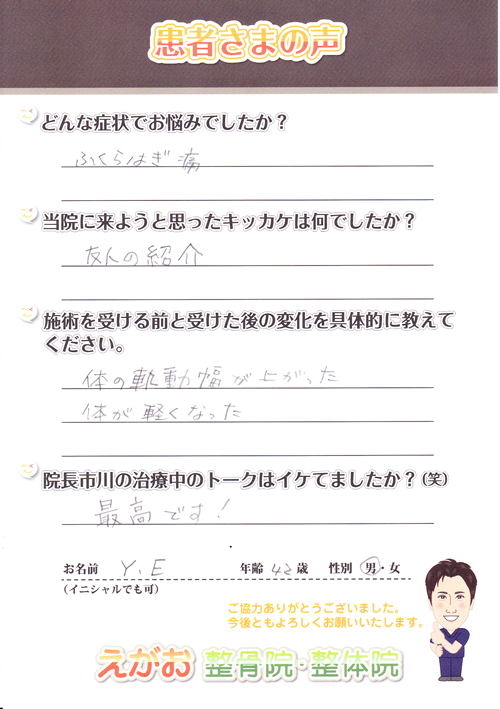 患者さまの声
どんな症状でお悩みでしたか？
ふくらはぎ痛
当院に来ようと思ったキッカケは何でしたか？
友人の紹介
施術を受ける前と受けた後の変化を具体的に教えて
ください。
体の軌動幅が上がった
体が軽くなった
院長市川の治療中のトークはイケてましたか？(笑)
最高です！
お名前 Y、E 年齢 42歳 性別 男・女
(イニシャルでも可)
ご協力ありがとうございました。
今後ともよろしくお願いいたします。
えがお 整骨院・整体院